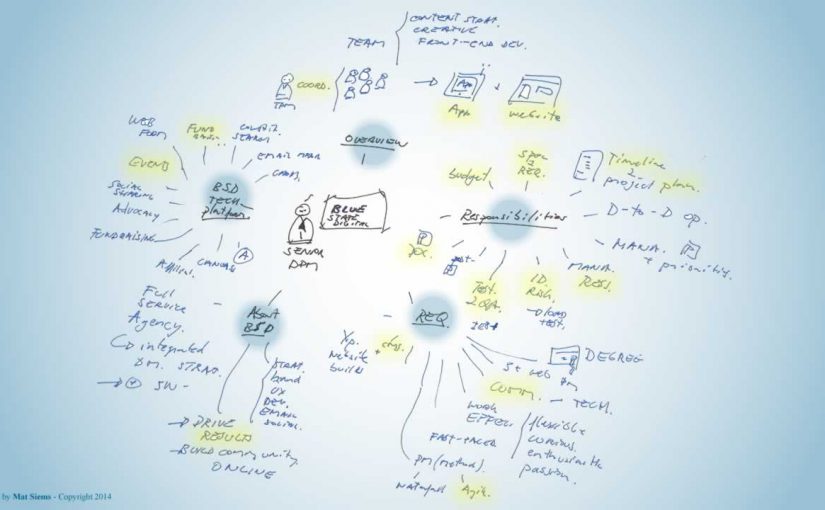 CONTENT STRAT.
CREATIVE
FRONT-END DEV.
TEAM
COORD.
App
App
website
OVERVIEW
WEB
FORM
FUND
SEARCH
EVENTS
EMAIL
SOCIAL
SHARING
ADVOCACY
FUNDRAISING
BSD
TECH
platform
BLUE
STATE
DIGITAL
SENIOR
DPM
budget
SPEC
REQ.
Timeline
project plan.
Responsibilities
D-to-D op.
MANA.
+ priority.
MANA.
RESS.
DOC.
TEST.
QA.
ID.
Risk.
LOAD
TEST.
FULL
SERVICE
Agency.
integrated
DM. STRAT.
About
BSD
STRAT.
brand
UX
DEV.
EMAIL
SOCIAL.
DRIVE
RESULTS
BUILD community
ONLINE
REQ.
Xp.
Website
builds
DEGREE
5+ web PM
COMM.
TECH.
WORK
FAST-PACED
flexible
curious.
enthusiastic
passion.
PM (method.)
Agile.
by Mat Siems - Copyright 2014